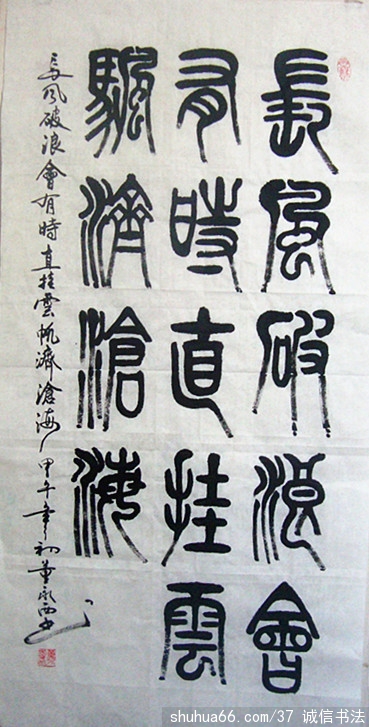 長風破浪會
有時直挂雲
颿濟滄海
長風破浪會有時直挂雲帆濟滄海 甲午年初董永西书
shuhua66.com/37 诚信书法